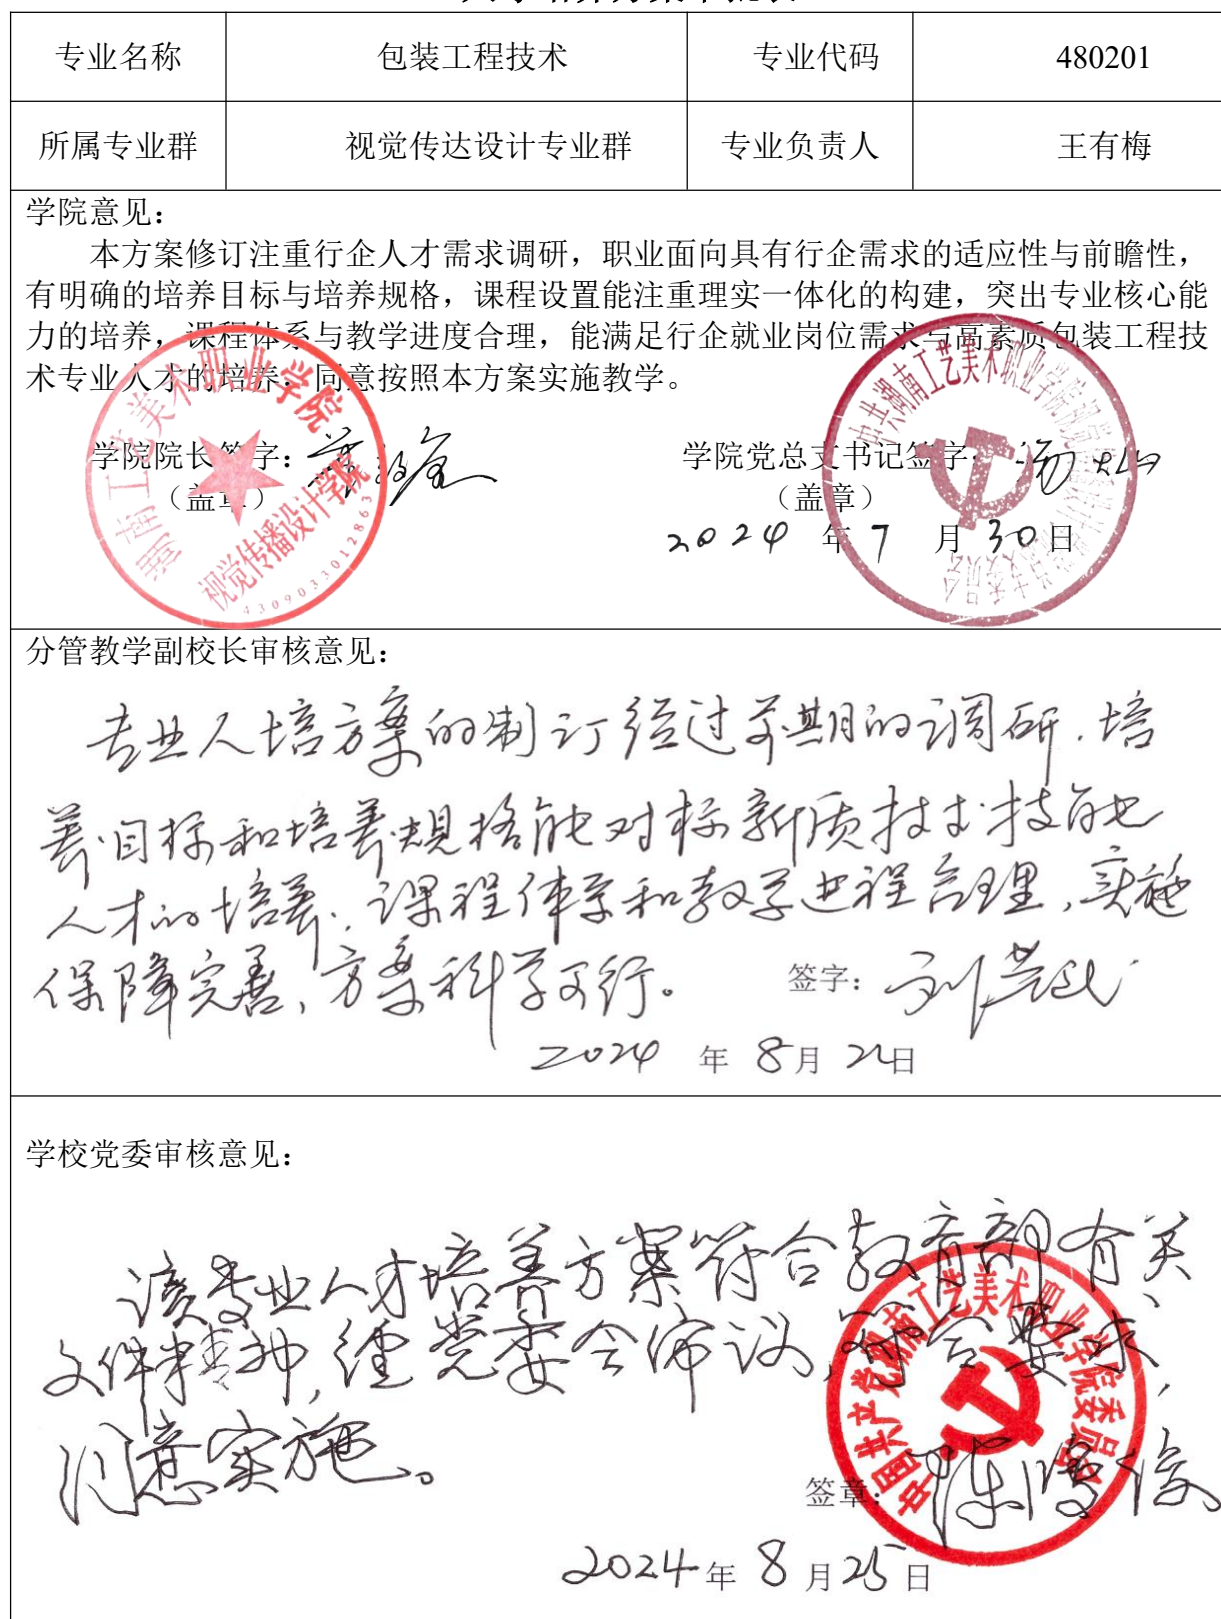 专业名称 包装工程技术 专业代码 480201
所属专业群 视觉传达设计专业群 专业负责人 王有梅
学院意见：
本方案修订注重行企人才需求调研，职业面向具有行企需求的适应性与前瞻性，
有明确的培养目标与培养规格，课程设置能注重理实一体化的构建，突出专业核心能
力的培养，课程体系与教学进度合理，能满足行企就业岗位需求与高素质包装工程技
术专业人才的培养。同意按照本方案实施教学。
学院院长签字： 学院党总支书记签字：
（盖章） （盖章）
2024 年 7 月 30 日
湖南工艺美术职业学院
视觉传播设计学院
4309033012863
分管教学副校长审核意见：
专业人培方案的制订经过前期的调研，培
养目标和培养规格能对标新质技术技能
人才的培养，课程体系和教学进程合理，实施
保障完善，方案科学可行。 签字：
2024 年 8 月 日
学校党委审核意见：
该专业人才培养方案符合教育部有关
文件精神，经党委会审议，符合要求，
同意实施。
签章：
2024 年 8 月 25 日
中国共产党湖南工艺美术职业学院委员会